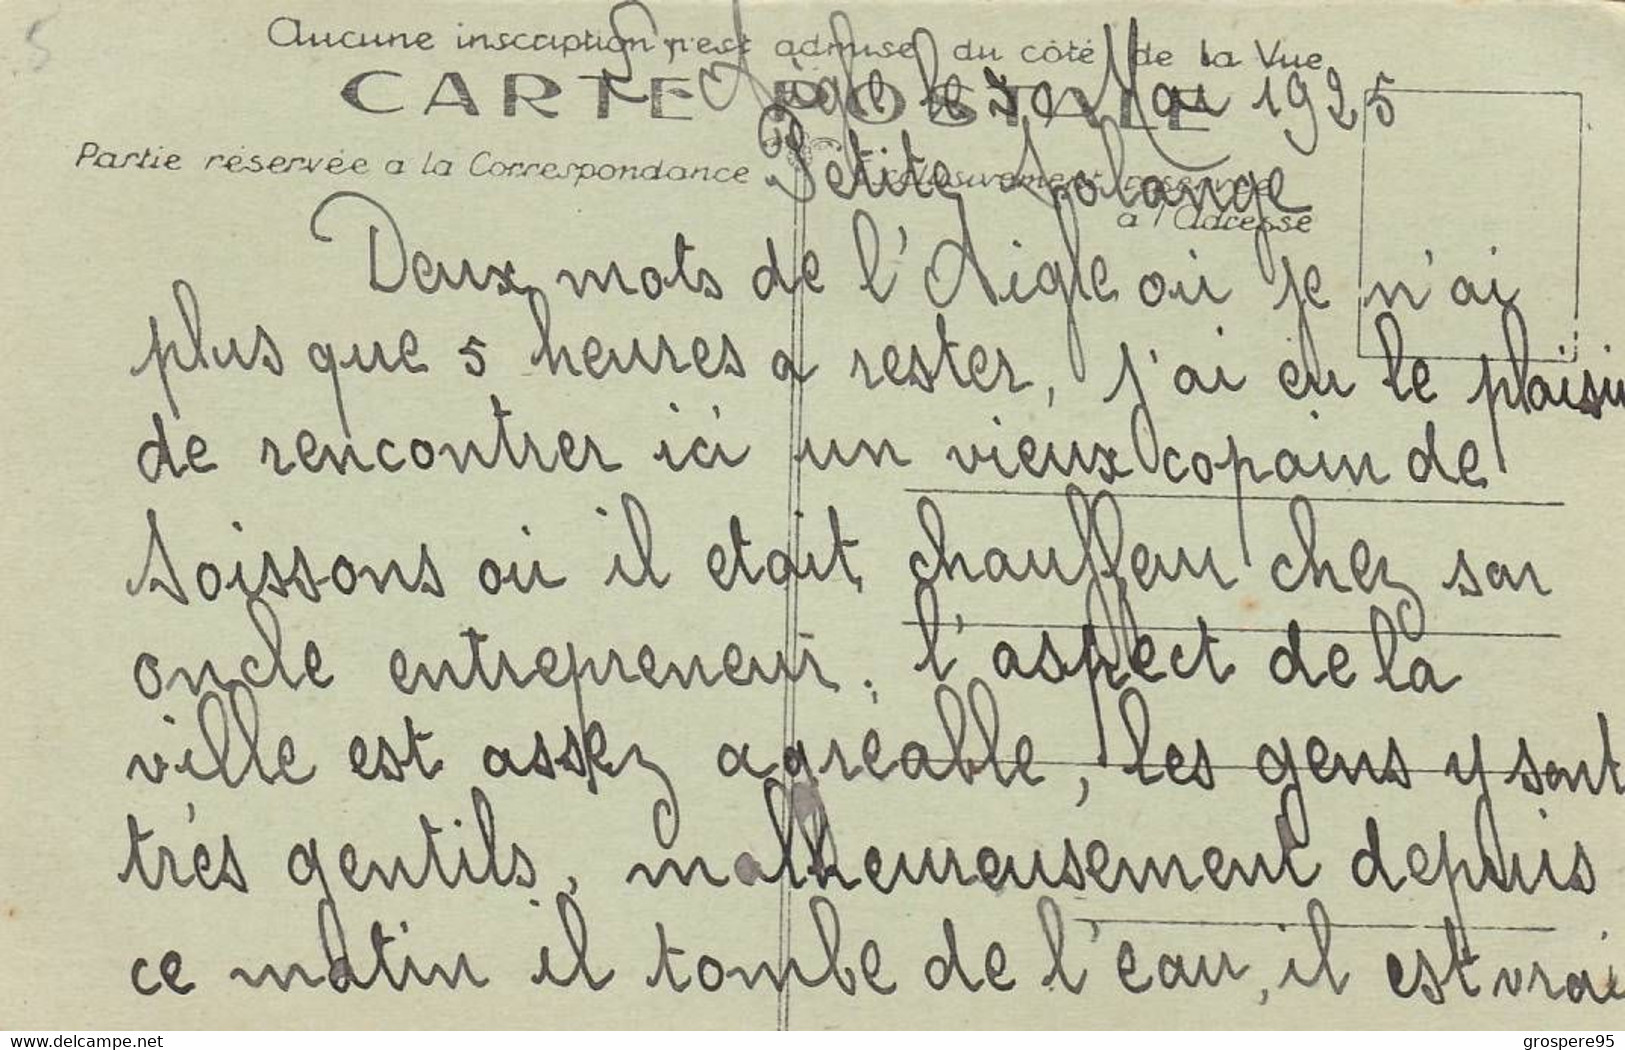 5
Aucune inscription n'est admise du côté de la Vue
CARTE POSTALE
L'Aigle le 30 Mai 1925
Partie réservée a la Correspondance
Petite Solange
exclusivement réservée
a l'Adresse
Deux mots de l'Aigle où je n'ai
plus que 5 heures a rester, j'ai eu le plaisir
de rencontrer ici un vieux copain de
Soissons où il etait chauffeur chez son
oncle entrepreneur, l'aspect de la
ville est assez agréable, les gens y sont
très gentils, malheureusement depuis
ce matin il tombe de l'eau, il est vrai
Delcampe.net
grospere95